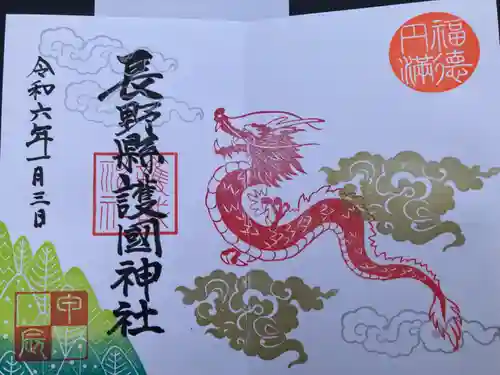 福德
円満
長野縣護國神社
令和六年一月三日
甲辰